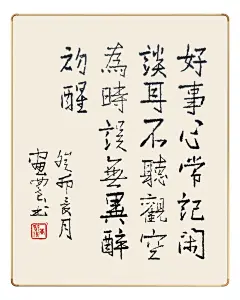 好事心常記閑
談耳不聽觀空
為時誤無異醉
初醒
癸卯月